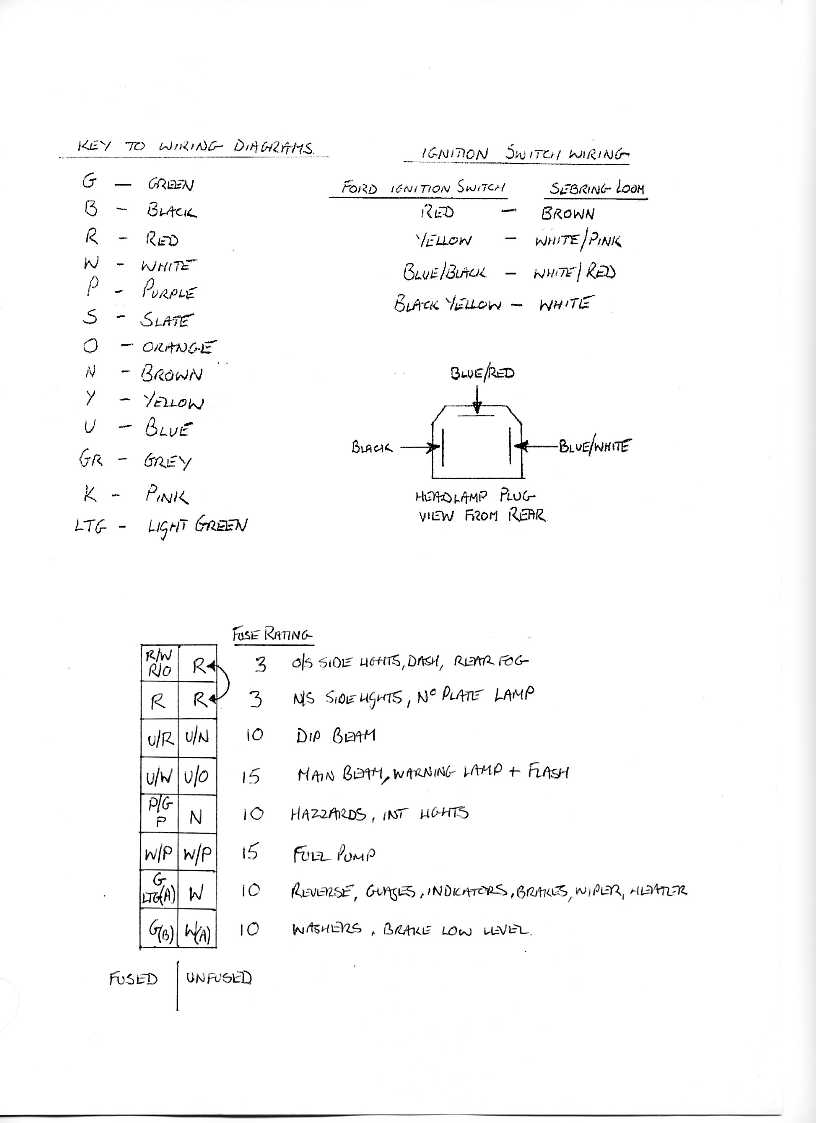 KEY TO WIRING DIAGRAMS.
G — GREEN
B - BLACK
R - RED
W - WHITE
P - PURPLE
S - SLATE
O - ORANGE
N - BROWN
Y - YELLOW
U - BLUE
GR - GREY
K - PINK
LTG - LIGHT GREEN
IGNITION SWITCH WIRING
FORD IGNITION SWITCH SEBRING LOOM
RED — BROWN
YELLOW - WHITE/PINK
BLUE/BLACK - WHITE/RED
BLACK YELLOW - WHITE
BLUE/RED
BLACK BLUE/WHITE
HEADLAMP PLUG
VIEW FROM REAR
FUSE RATING
R/W
R/O R 3 O/S SIDE LIGHTS, DASH, REAR FOG
R R 3 N/S SIDE LIGHTS, Nº PLATE LAMP
U/R U/N 10 DIP BEAM
U/W U/O 15 MAIN BEAM, WARNING LAMP + FLASH
P/G
P N 10 HAZZARDS, INT LIGHTS
W/P W/P 15 FUEL PUMP
G
LTG(A) W 10 REVERSE, GUAGES, INDICATORS, BRAKES, WIPER, HEATER
G(B) W(A) 10 WASHERS, BRAKE LOW LEVEL.
FUSED UNFUSED